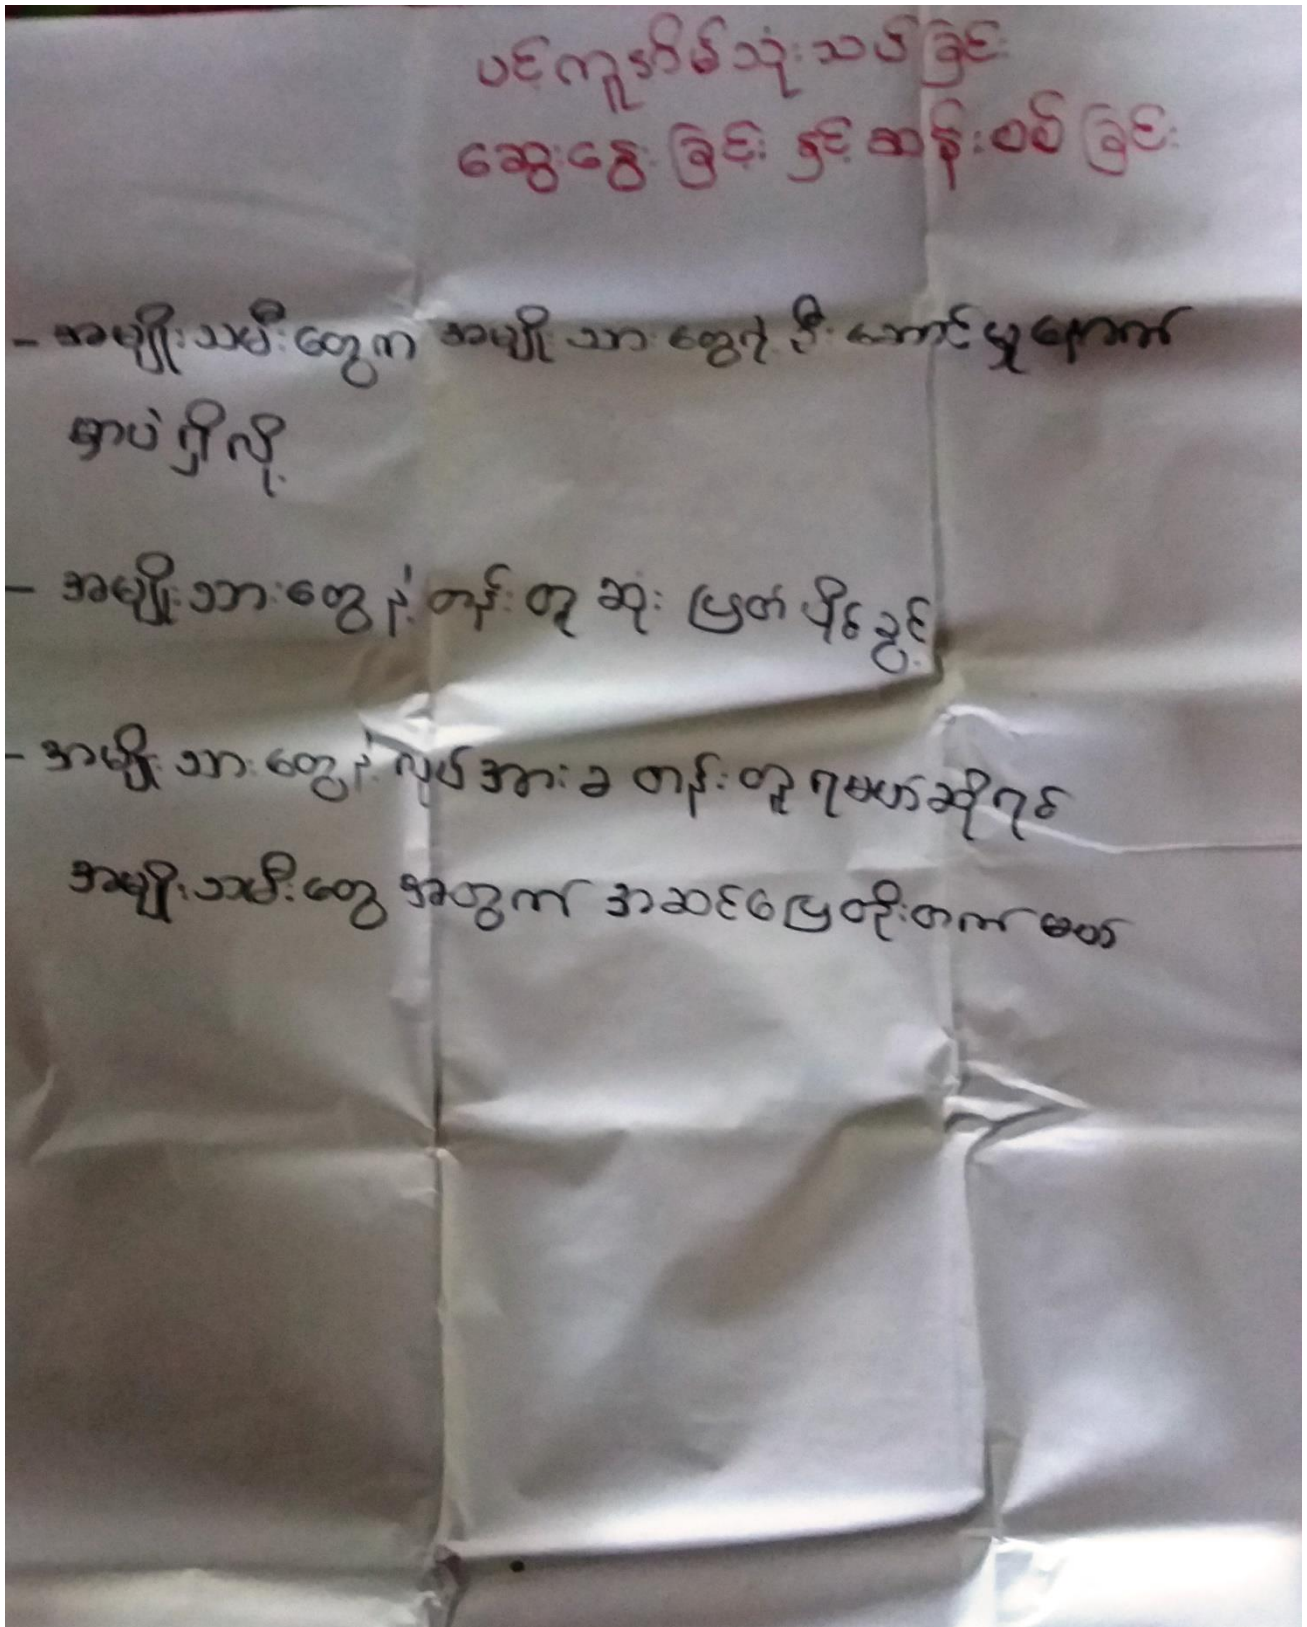 ပင့်ကူအိမ်သုံးသပ်ခြင်း
ဆွေးနွေးခြင်း နှင့်ဆန်းစစ်ခြင်း
- အမျိုးသမီးတွေက အမျိုးသားတွေရဲ့ဦးဆောင်မှုနောက်
မှာပဲရှိလို့
- အမျိုးသားတွေနဲ့တန်းတူဆုံးဖြတ်ပိုင်ခွင့်
- အမျိုးသားတွေနဲ့လုပ်အားခတန်းတူရမယ်ဆိုရင်
အမျိုးသမီးတွေအတွက်အဆင်ပြေတိုးတက်မယ်